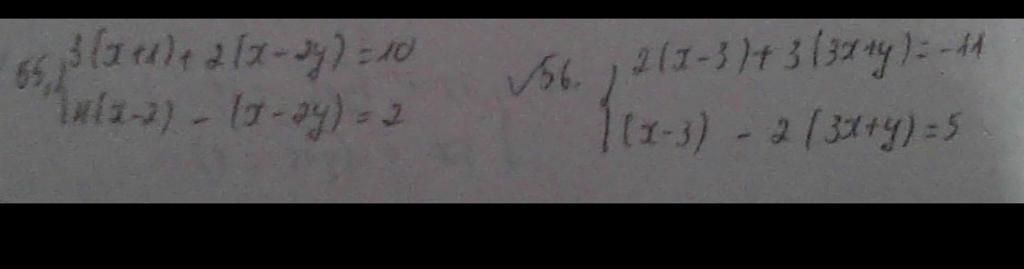 55. 3(x+1)+2(x-2y)=10
4(x-2) - (x-2y)=2
√56. 2(x-3)+3(3x+y)=-11
(x-3) - 2(3x+y)=5